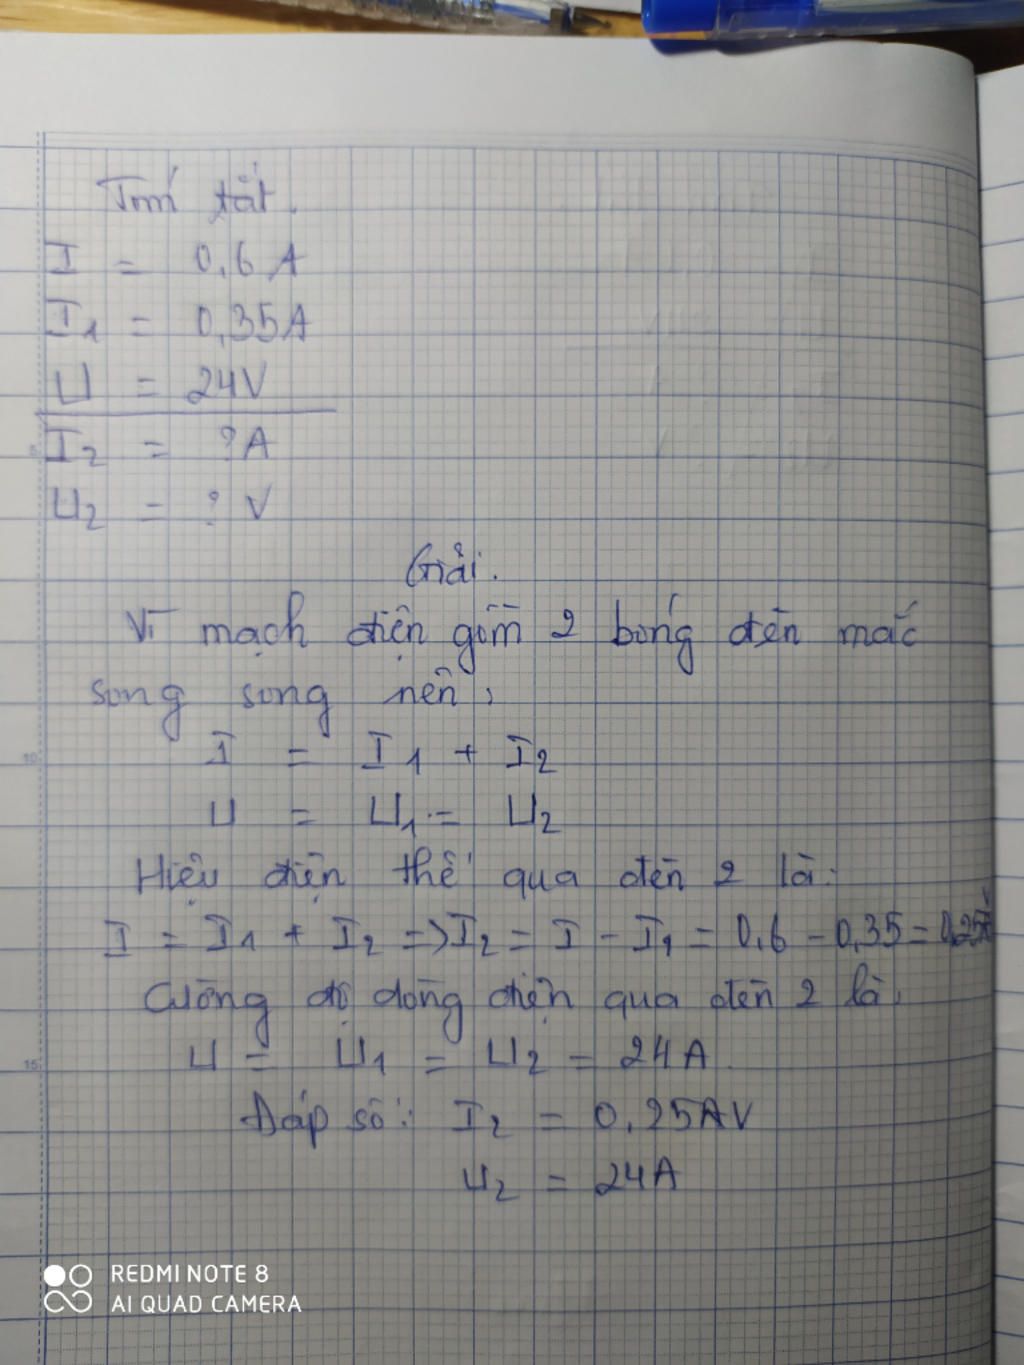 Tóm tắt.
I = 0,6 A
I1 = 0,35A
U = 24V
I2 = ? A
U2 = ? V
Giải.
Vì mạch điện gồm 2 bóng đèn mắc
song song nên:
I = I1 + I2
U = U1 = U2
Hiệu điện thế qua đèn 2 là:
I = I1 + I2 => I2 = I - I1 = 0,6 - 0,35 = 0,25
Cường độ dòng điện qua đèn 2 là:
U = U1 = U2 = 24A
Đáp số: I2 = 0,25AV
U2 = 24A
REDMI NOTE 8
AI QUAD CAMERA